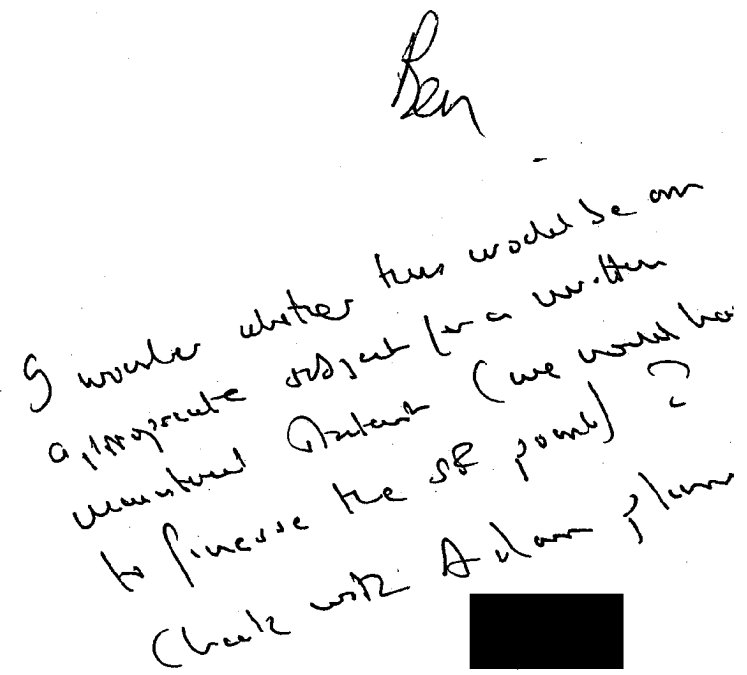 Ben
I wonder whether this would be an
appropriate subject for a written
ministerial statement (we would ha
to finesse the points) ?
Check with Adam please